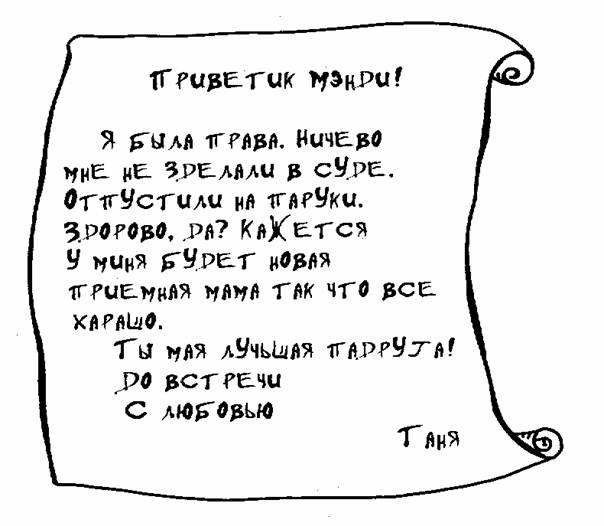 Приветик Мэнди!
Я была права. Ничево
мне не зделали в суде.
Отпустили на паруки.
Здорово, да? Кажется
у миня будет новая
приемная мама так что все
харашо.
Ты мая лучьшая падруга!
До встречи
С любовью
Таня